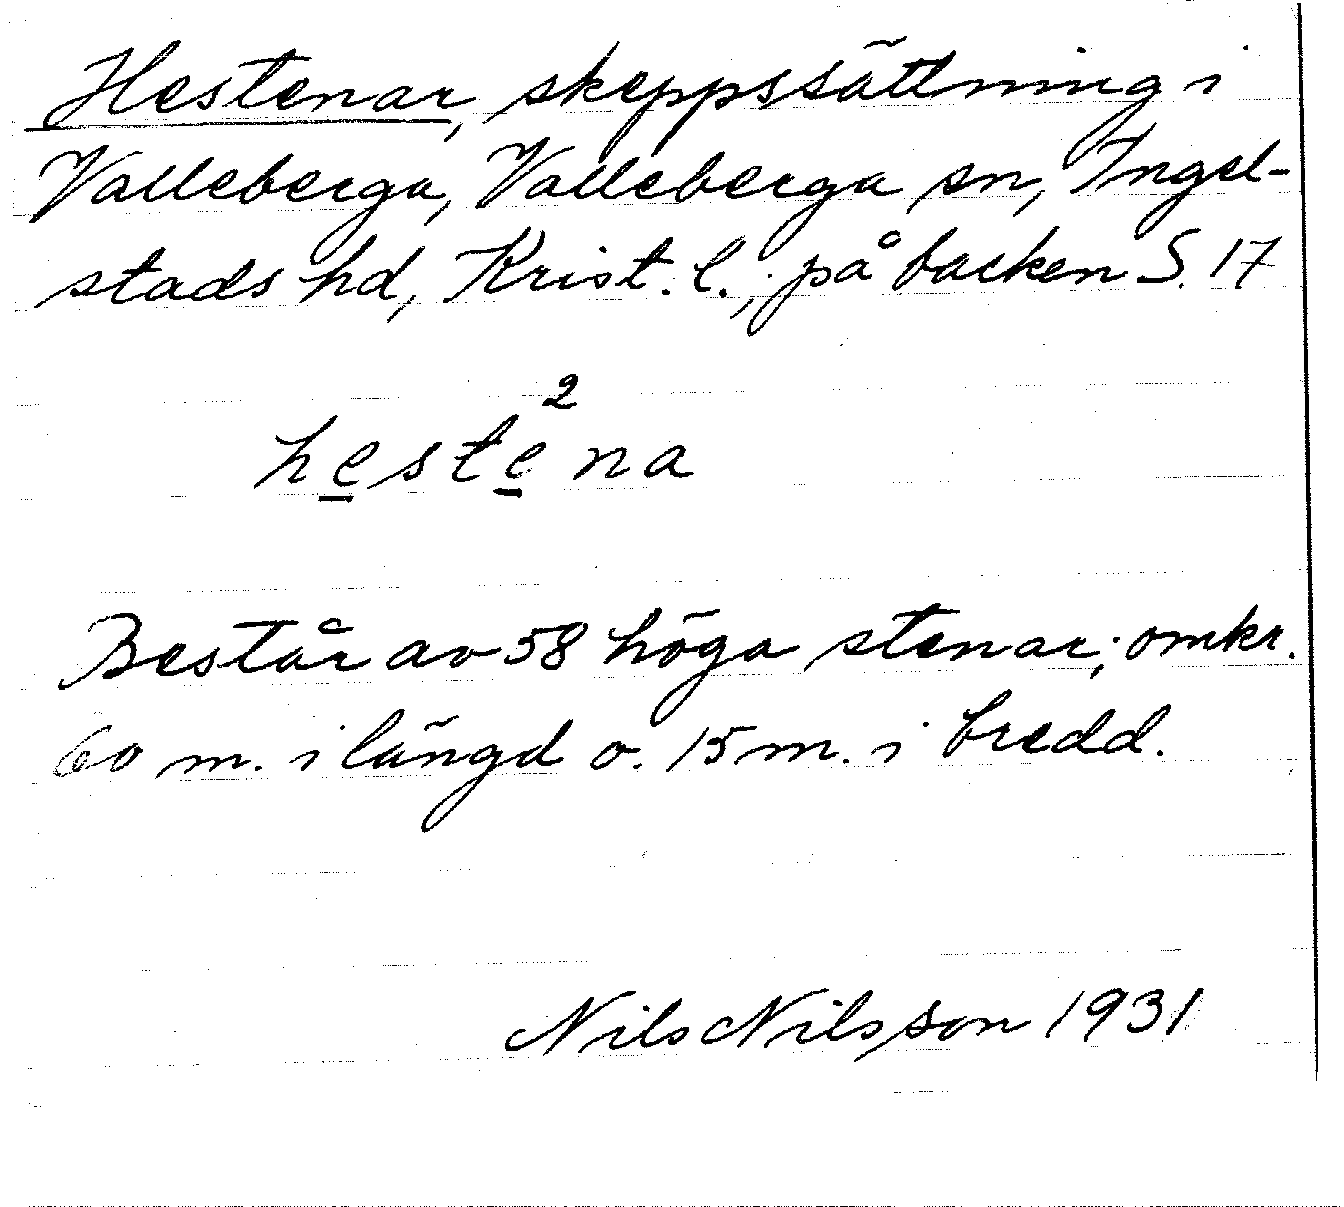 Hestenar, skeppssättning i
Valleberga, Valleberga sn, Ingel-
stads hd, Krist. l.; på backen S. 17
he̲ste̲²na
Består av 58 höga stenar; omkr.
60 m. i längd o. 15 m. i bredd.
Nils Nilsson 1931